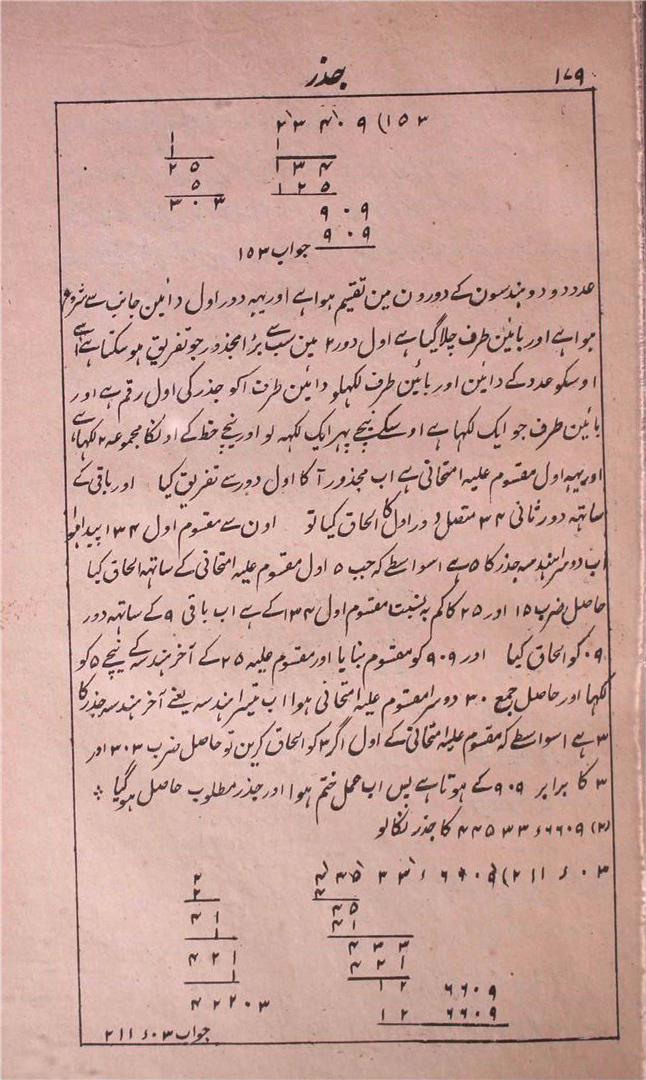 جذر
۱۷۹
۲۳۴۰۹ (۱۵۳
۱ ۱
۱
۲۵ ۱۳۴
۵ ۱۲۵
۳۰۳
۹۰۹
۹۰۹
جواب ۱۵۳
عدد دو دو ہندسون کے دورون مین تقیم ہوا ہے اور یہہ دور اول دائین جانب سے شروع
ہوا ہے اور بائین طرف چلا گیا ہے اول دور ۲ مین سب سے بڑا مجذور جو تفریق ہو سکتا ہے ہے
اوسکو عدد کے دائین اور بائین طرف لکہلو دائین طرف اکو جذر کی اول رقم ہے اور
بائین طرف جو ایک لکہا ہے اوسکے نیچے پہر ایک لکہہ لو اور نیچے خط کے اونکا مجموعہ ۲ لکہا ہے
اور یہہ اول مقسوم علیہ امتحانی ہے اب مجذور ا کا اول دور سے تفریق کیا اور باقی کے
ساتہہ دور ثانی ۳۴ متصل دور اول کا الحاق کیا تو اون سے مقسوم اول ۱۳۴ پیدا ہوا
اب دوسرا ہندسہ جذر کا ۵ ہے اسواسطے کہ جب ۵ اول مقسوم علیہ امتحانی کے ساتہہ الحاق کیا
حاصل ضرب ۱۵ اور ۲۵ کا کم بہ نسبت مقسوم اول ۱۳۴ کے ہے اب باقی ۹ کے ساتہہ دور
۰۹ کو الحاق کیا اور ۹۰۹ کو مقسوم بنایا اور مقسوم علیہ ۲۵ کے آخر ہندسہ کے نیچے ۵ کو
لکہا اور حاصل جمع ۳۰ دوسرا مقسوم علیہ امتحانی ہوا اب تیسرا ہندسہ یعنے آخر ہندسہ جذر کا
۳ ہے اسواسطے کہ مقسوم علیہ امتحانی کے اول اگر ۳ کو الحاق کرین تو حاصل ضرب ۳۰۳ اور
۳ کا برابر ۹۰۹ کے ہوتا ہے پس اب عمل ختم ہوا اور جذر مطلوب حاصل ہو گیا ؞
(۲) ۴۴۵۳۳ء۶۶۰۹ کا جذر نکالو
۴۴۵۳۳ء۶۶۰۹ (۲۱۱ء۰۳
۲
۲ ۴
۴۱ ۴۵
۱ ۴۱
۴۲۱ ۴۳۳
۱ ۴۲۱
۴۲۲۰۳ ۱۲ ۶۶۰۹
۱۲ ۶۶۰۹
جواب ۲۱۱ء۰۳